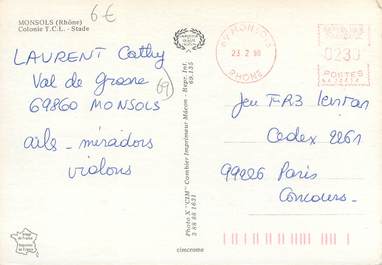 MONSOLS (Rhône)
Colonie T.C.L. - Stade
6€
LAURENT Cathy
Val de Grosne
69860 MONSOLS
69
ails - miradors
violons
69 MONSOLS
23.2.90
RHONE
0230
POSTES
Jeu FR3
Cedex 2261
99226 Paris
Concours.
Photo X "CIM" Combier Imprimeur Mâcon - Repr. Int.
69.135
3 88 48 1631
cimcrome